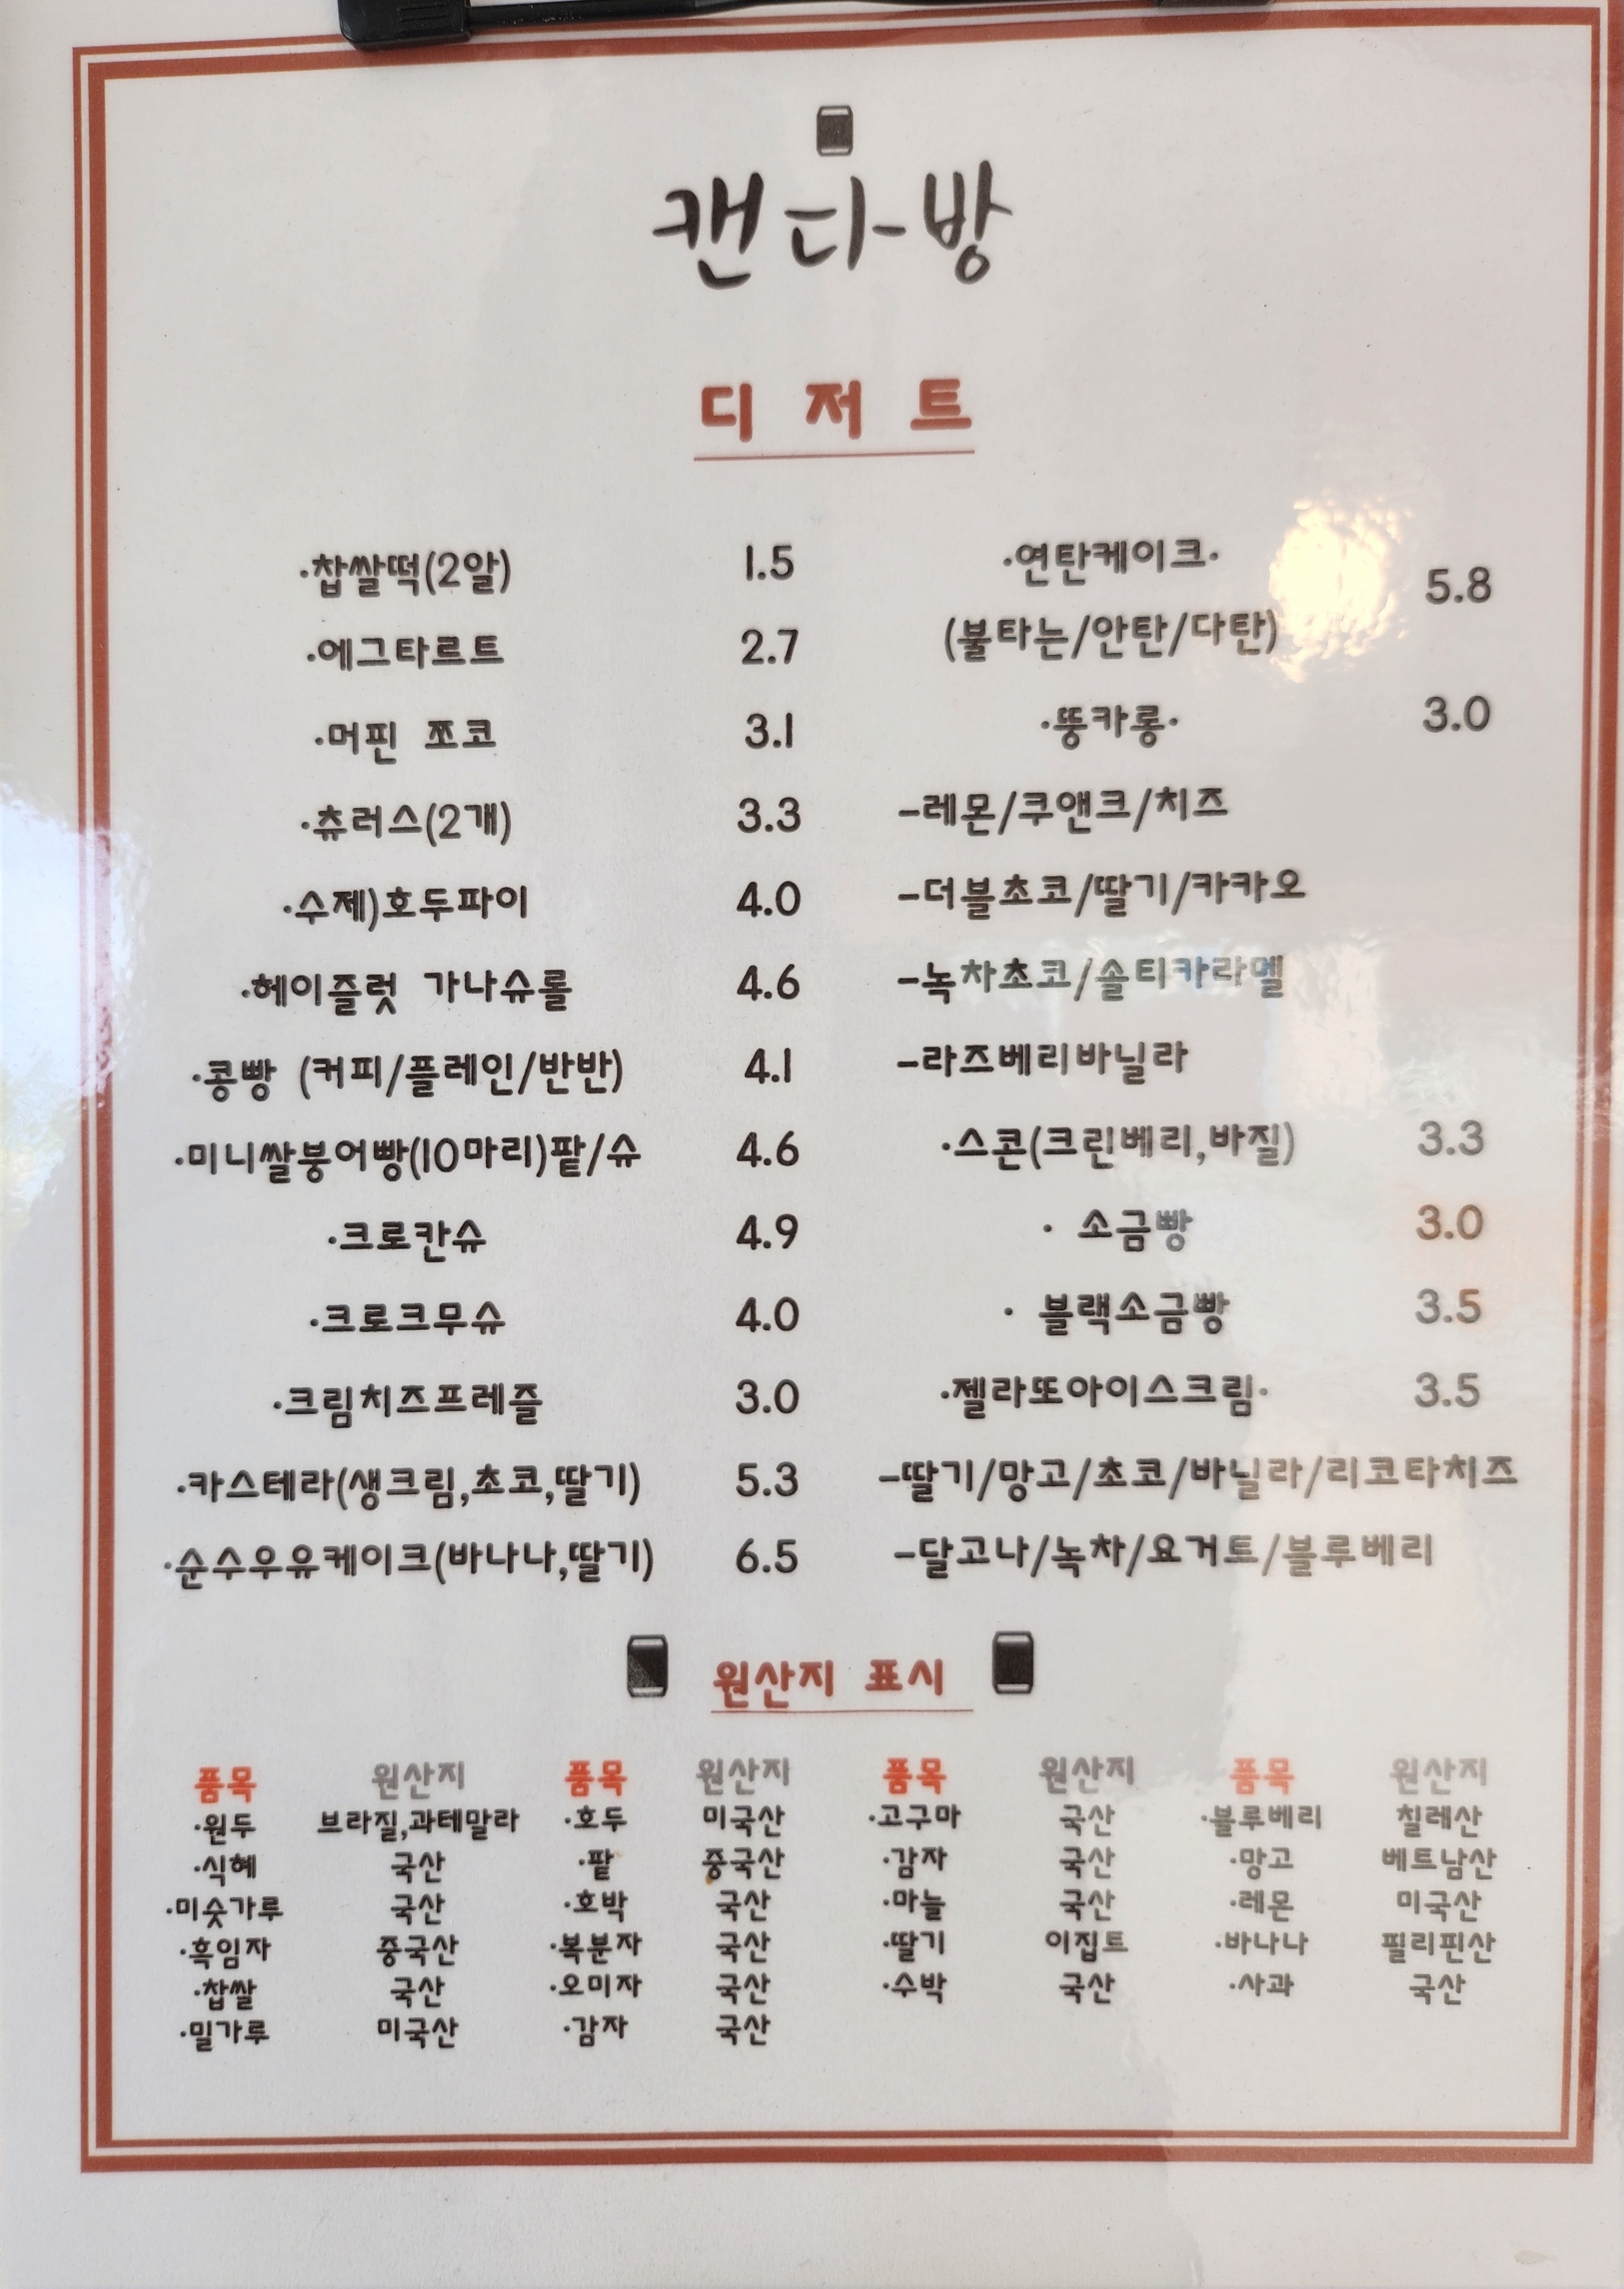 캔다방
디저트
·찹쌀떡(2알) 1.5
·에그타르트 2.7
·머핀 쪼코 3.1
·츄러스(2개) 3.3
·수제)호두파이 4.0
·헤이즐럿 가나슈롤 4.6
·콩빵 (커피/플레인/반반) 4.1
·미니쌀붕어빵(10마리)팥/슈 4.6
·크로칸슈 4.9
·크로크무슈 4.0
·크림치즈프레즐 3.0
·카스테라(생크림,초코,딸기) 5.3
·순수우유케이크(바나나,딸기) 6.5
·연탄케이크· 5.8
(불타는/안탄/다탄)
·뚱카롱· 3.0
-레몬/쿠앤크/치즈
-더블초코/딸기/카카오
-녹차초코/솔티카라멜
-라즈베리바닐라
·스콘(크린베리,바질) 3.3
· 소금빵 3.0
· 블랙소금빵 3.5
·젤라또아이스크림· 3.5
-딸기/망고/초코/바닐라/리코타치즈
-달고나/녹차/요거트/블루베리
원산지 표시
품목 원산지 품목 원산지 품목 원산지 품목 원산지
·원두 브라질,과테말라 ·호두 미국산 ·고구마 국산 ·블루베리 칠레산
·식혜 국산 ·팥 중국산 ·감자 국산 ·망고 베트남산
·미숫가루 국산 ·호박 국산 ·마늘 국산 ·레몬 미국산
·흑임자 중국산 ·복분자 국산 ·딸기 이집트 ·바나나 필리핀산
·찹쌀 국산 ·오미자 국산 ·수박 국산 ·사과 국산
·밀가루 미국산 ·감자 국산